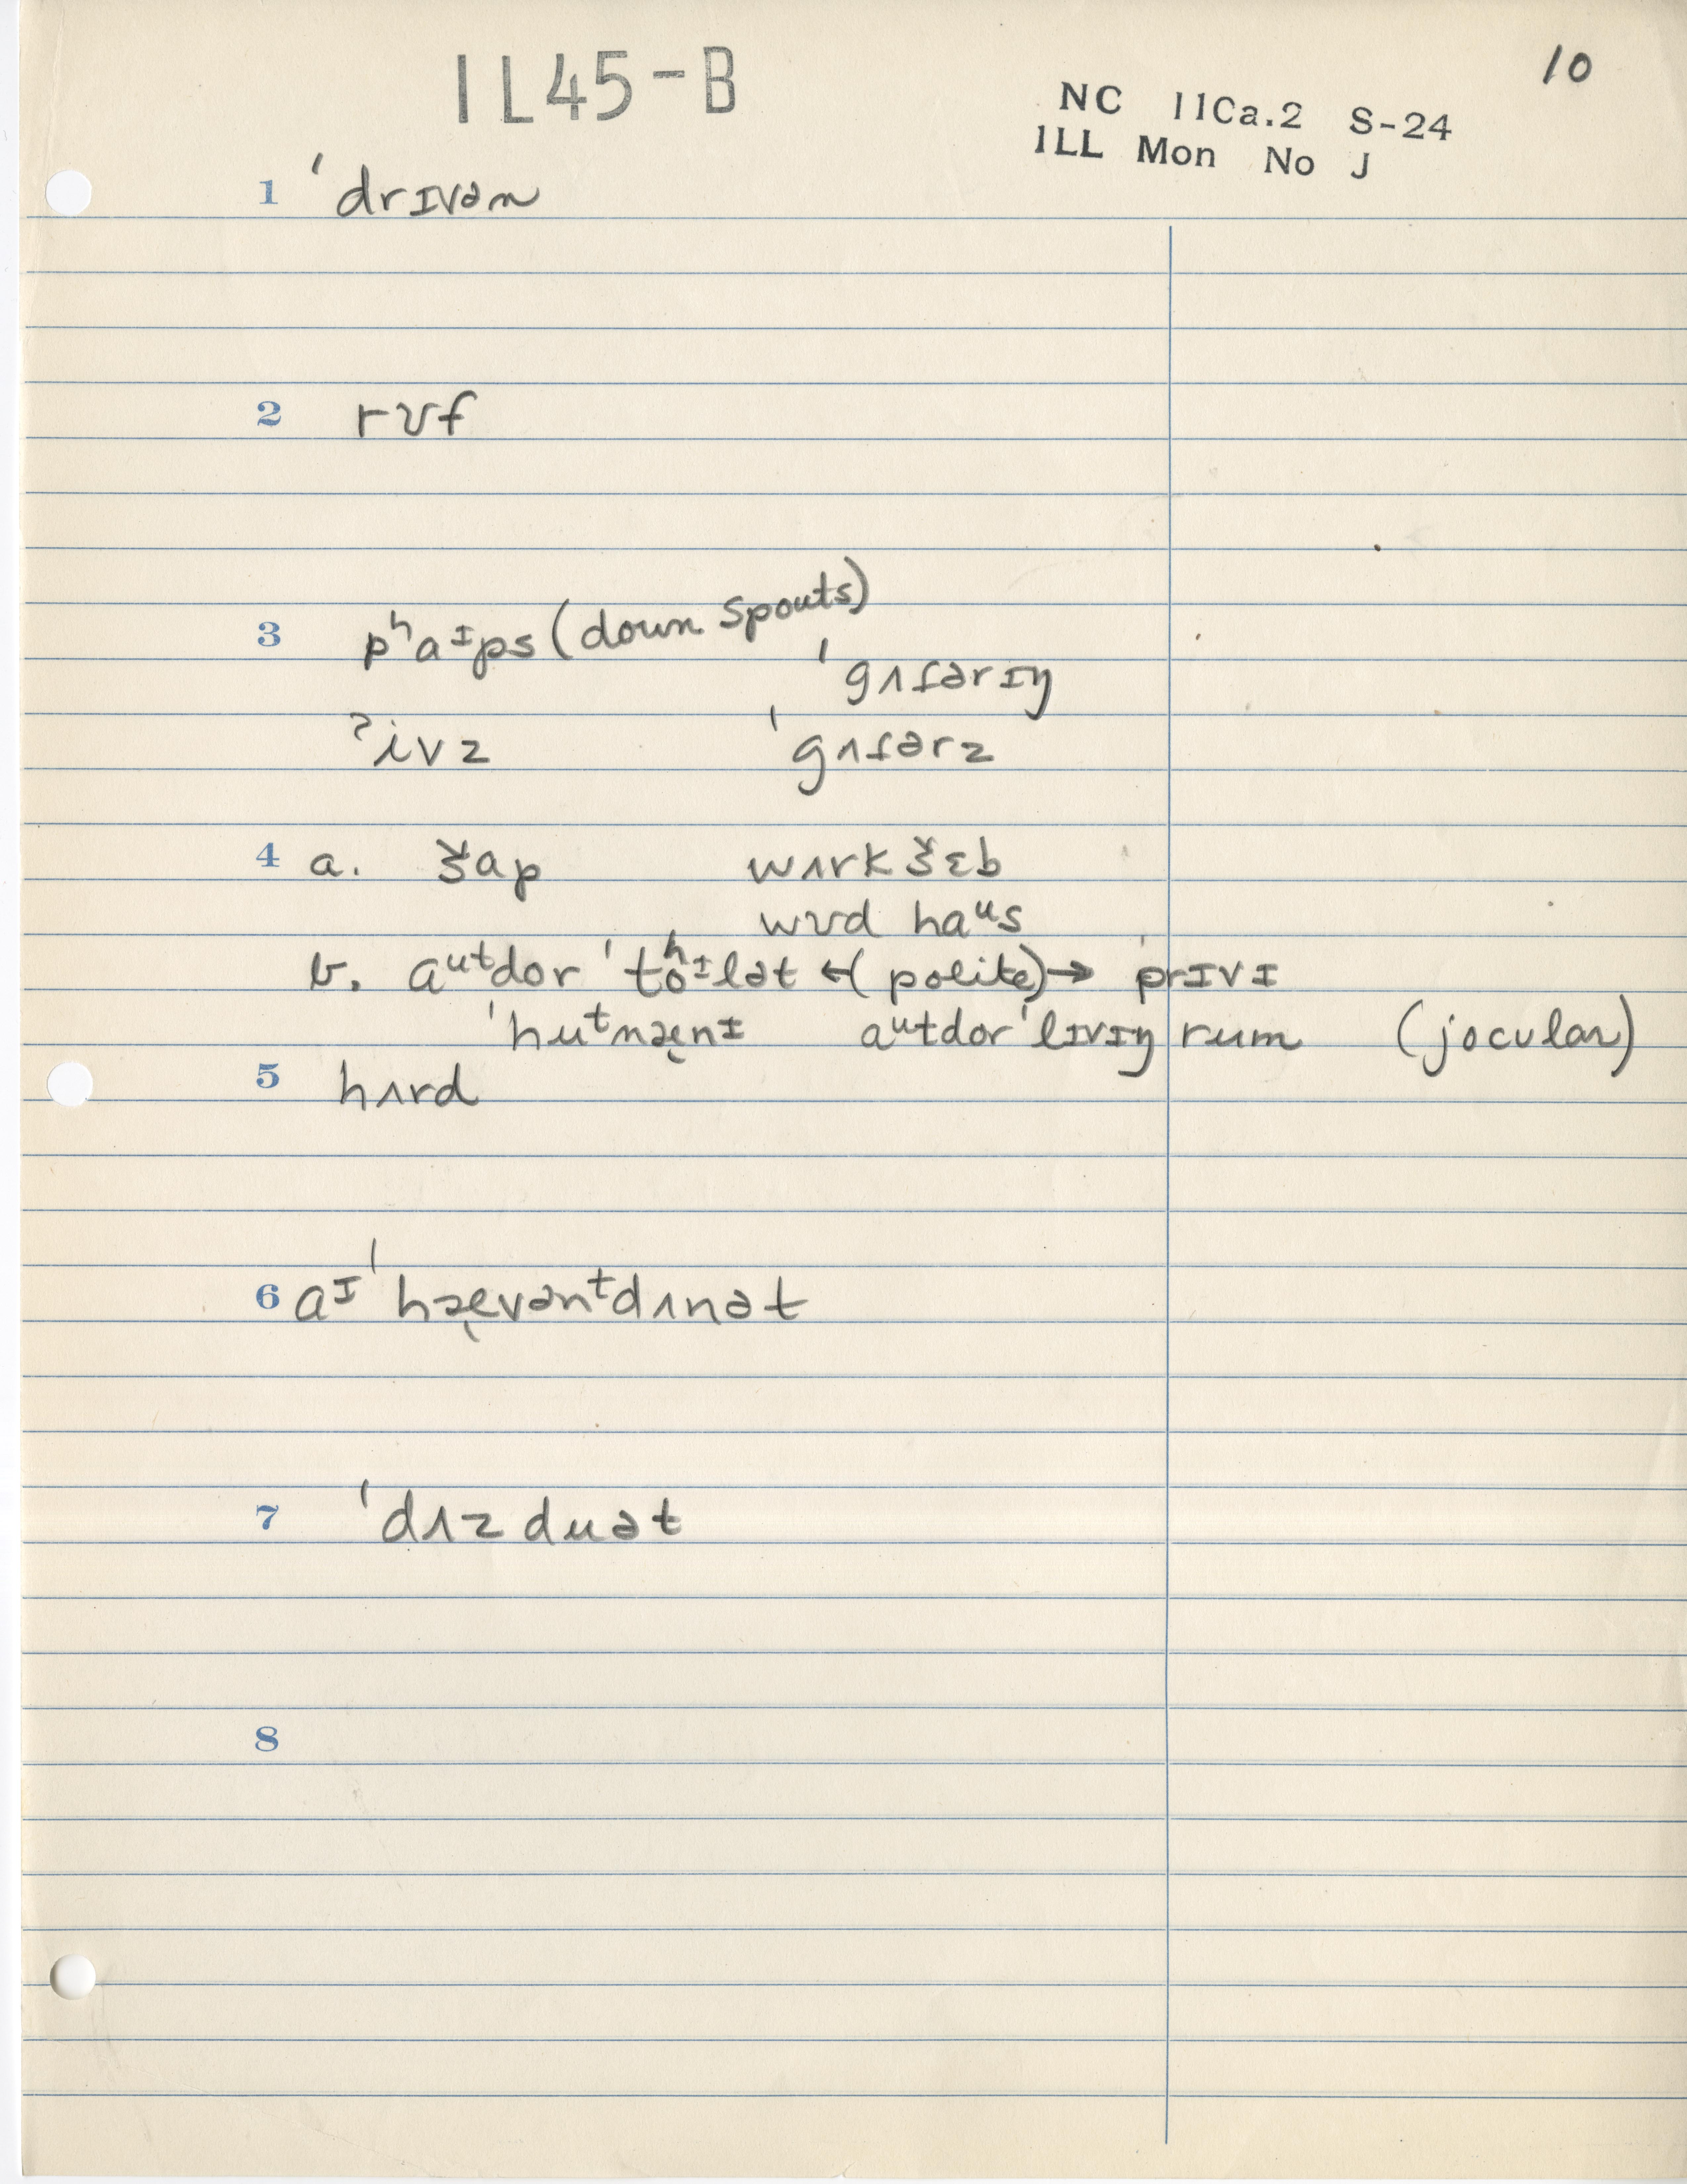 IL45-B
10
NC 11Ca.2 S-24
ILL Mon No J
1 ˈdrɪvən
2 rʊf
3 pʰaᶦps (down spouts)
ˈgʌɾərɪŋ
ˀivz ˈgʌɾərz
4 a. š̌ap wʌrk š̌ɛb
wʊd haᵘs
b. aᵘᵗdor ˈtʰoᶦlət ←(polite)→ ˈprɪvɪ
ˈhuᵗnæ̨nɪ aᵘᵗdor ˈlɪvɪŋ rum (jocular)
5 hʌrd
6 aᶦ ˈhæ̨vənᵗdʌnət
7 ˈdʌz duət
8